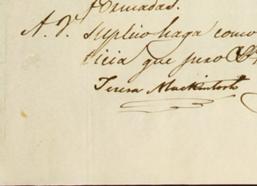 formadas.
A. V. Suplico haga como
ticia que juro &
Teresa Mackintosh